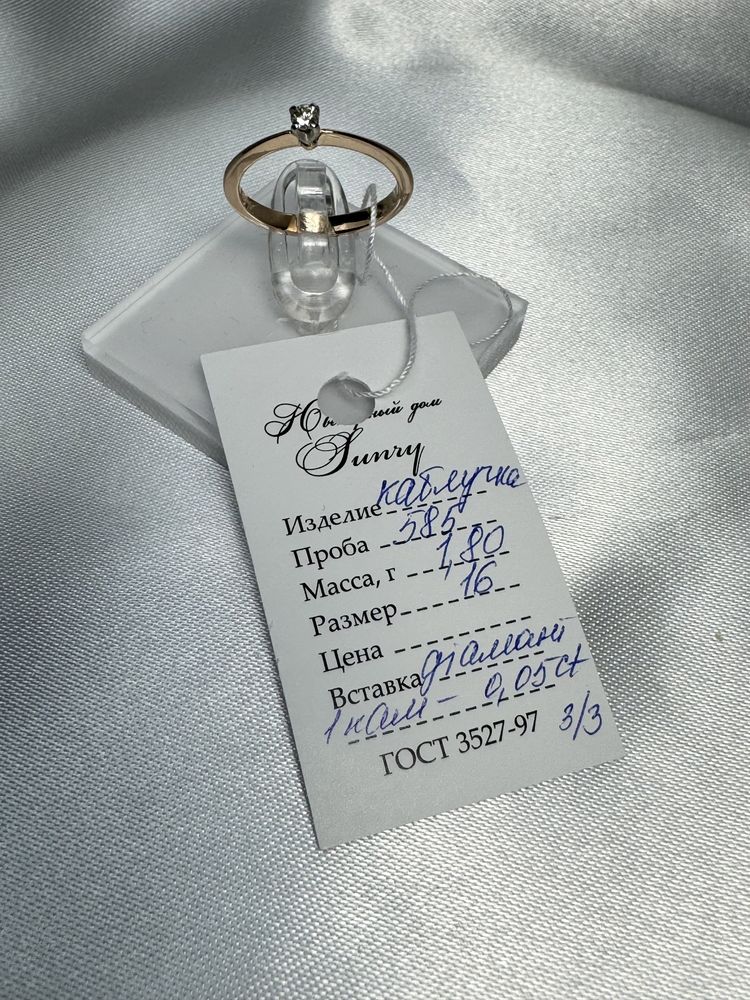 Ювелирный дом
Sunry
Изделие каблучка
Проба 585
Масса, г 1,80
Размер 16
Цена
Вставка діамант
1 кам - 0,05 ct
ГОСТ 3527-97 3/3